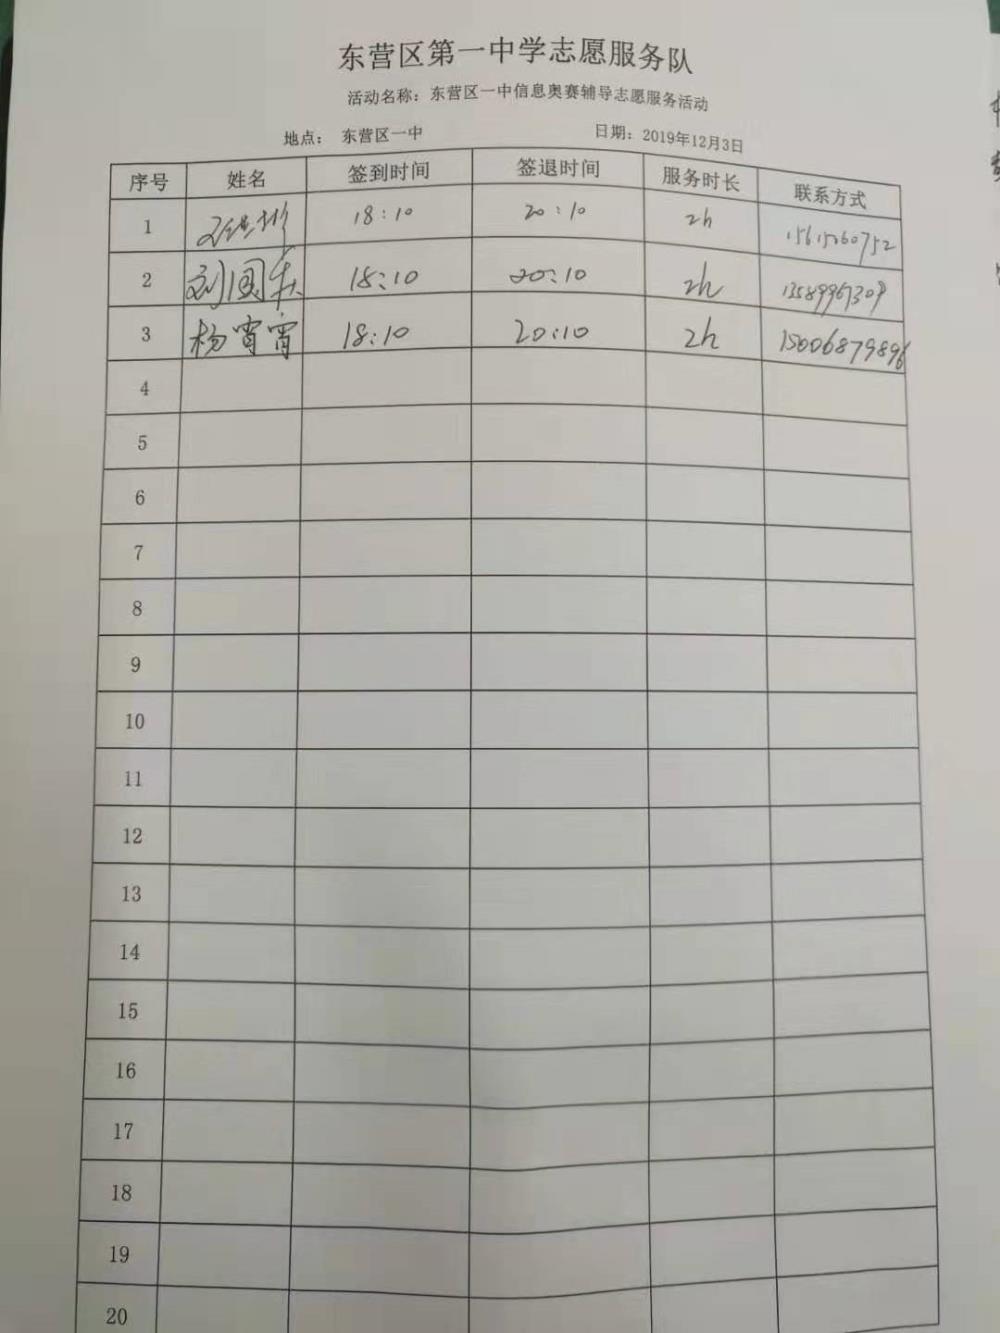 东营区第一中学志愿服务队
活动名称：东营区一中信息奥赛辅导志愿服务活动
地点： 东营区一中 日期：2019年12月3日
序号 姓名 签到时间 签退时间 服务时长 联系方式
1 18:10 20:10 2h 15615060752
2 刘国兵 18:10 20:10 2h 13589967309
3 杨宵宵 18:10 20:10 2h 15006879896
4
5
6
7
8
9
10
11
12
13
14
15
16
17
18
19
20